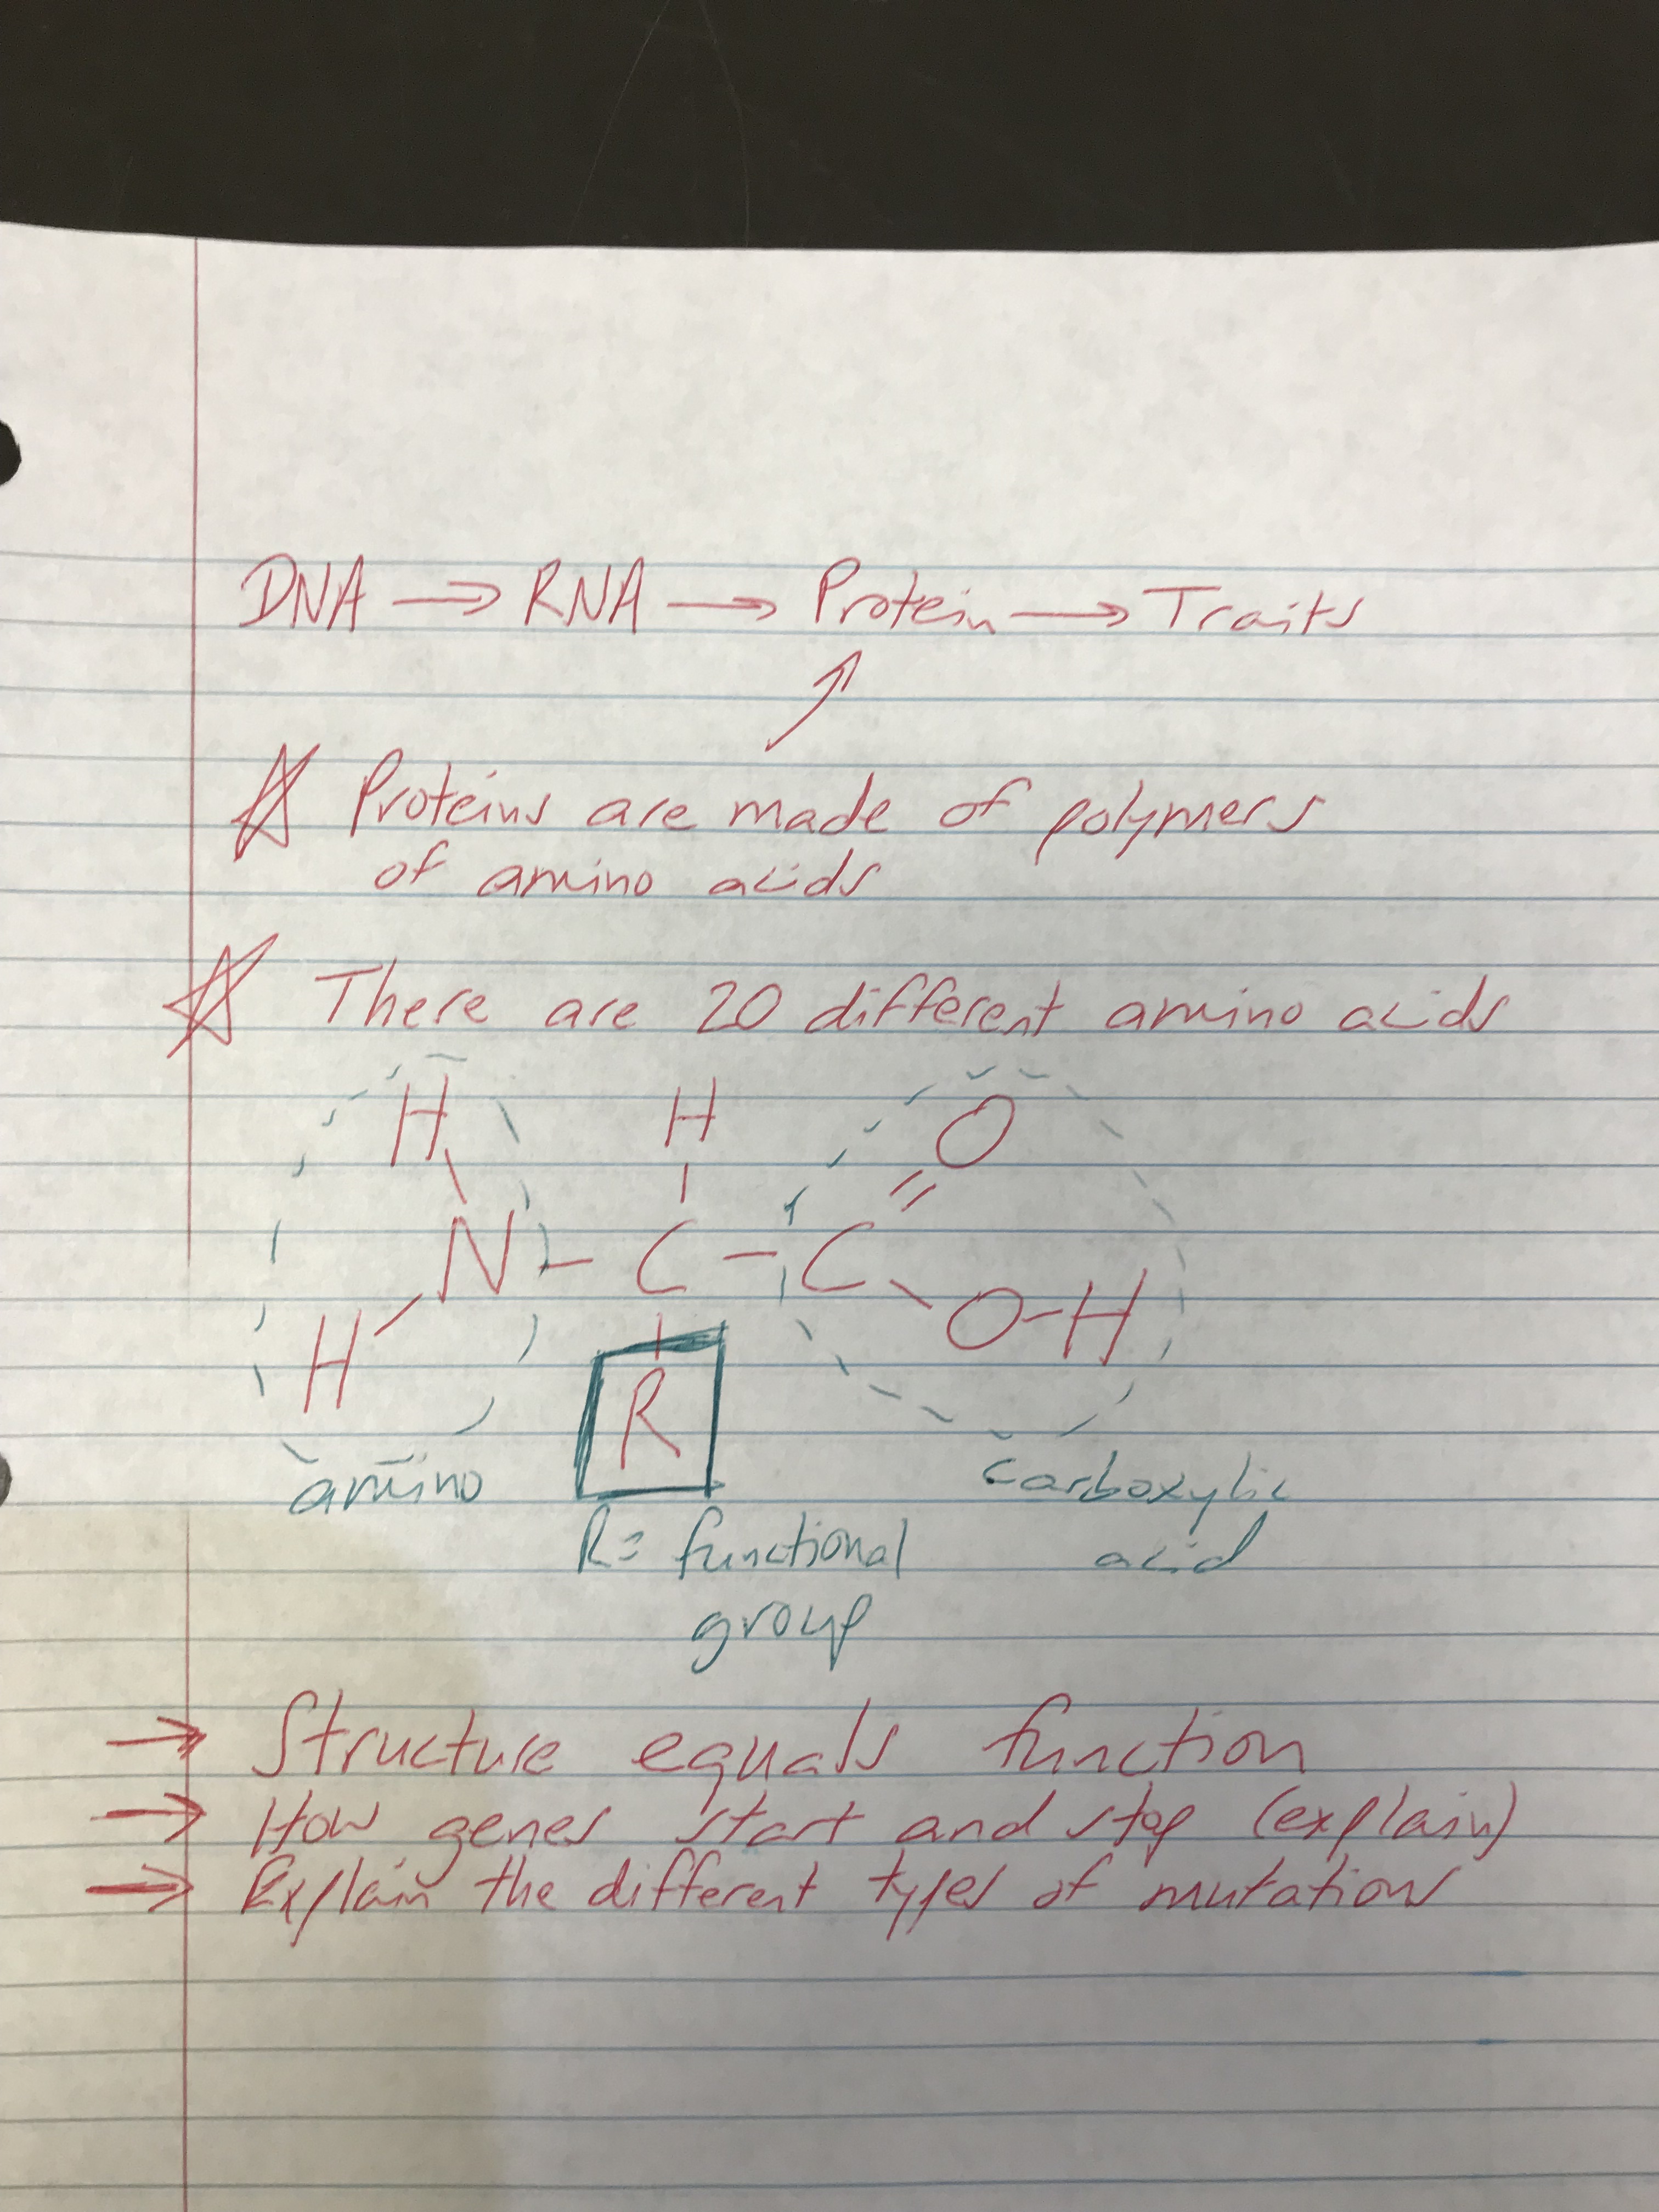 DNA → RNA → Protein → Traits
☆ Proteins are made of polymers
of amino acids
☆ There are 20 different amino acids
H H O
N - C - C
H O-H
R
amino carboxylic
R= functional acid
group
→ Structure equals function
→ How genes start and stop (explain)
→ Explain the different types of mutation